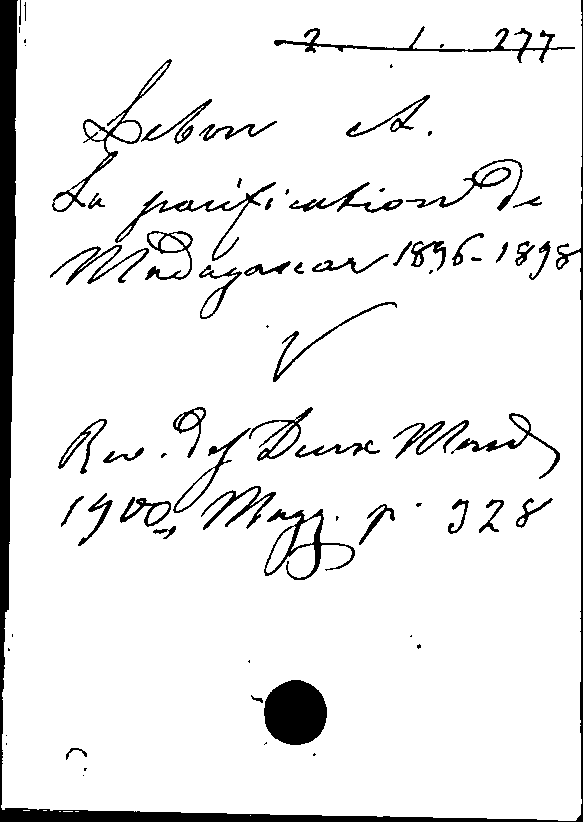 2. 1. 277
Lebon A.
La pacification de
Madagascar 1896-1898
V
Rev. des Deux Mondes
1900, Magg. p. 328